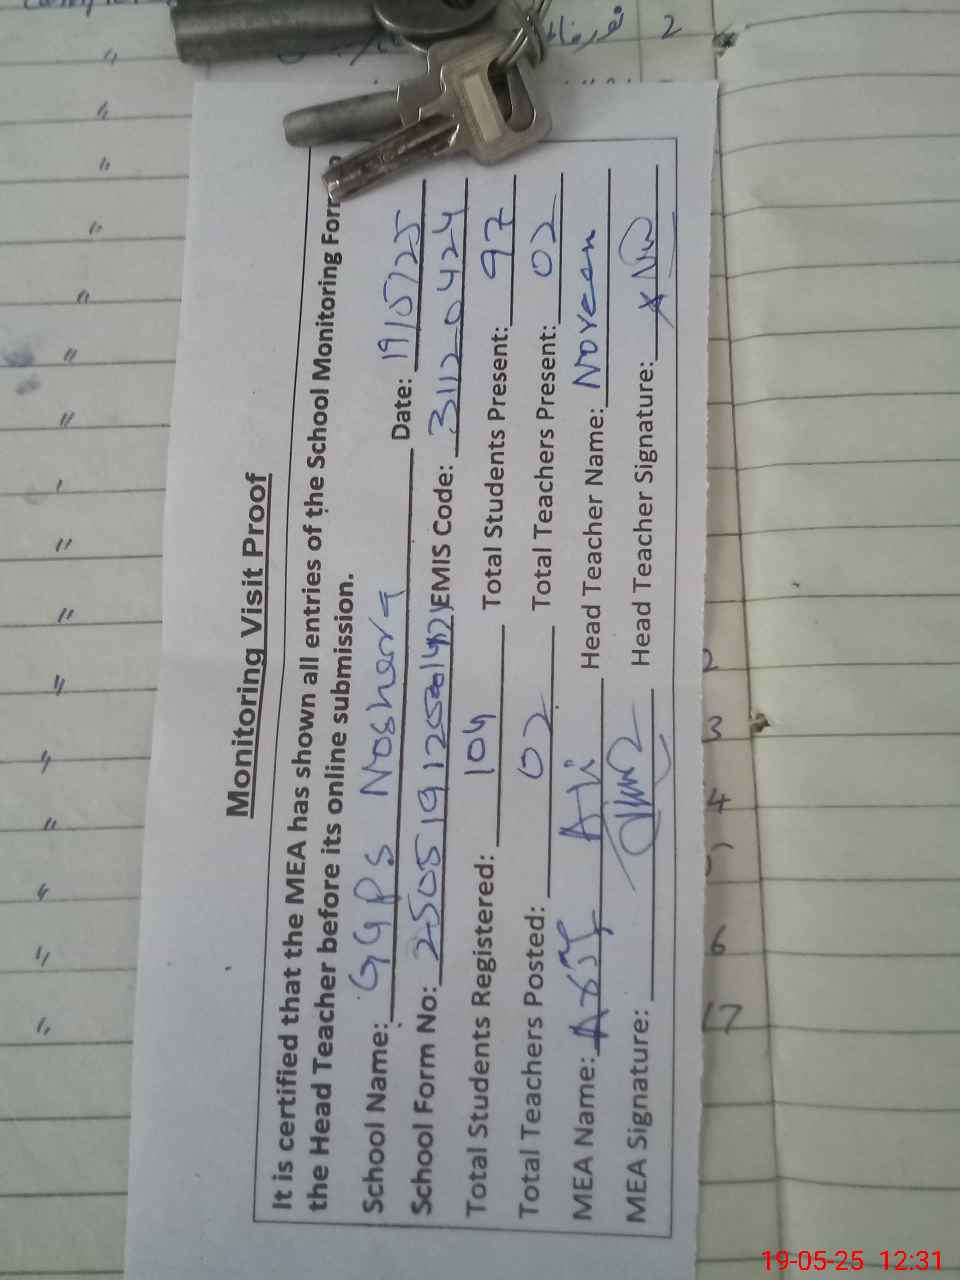 Monitoring Visit Proof
It is certified that the MEA has shown all entries of the School Monitoring Form
the Head Teacher before its online submission.
School Name: GGPS Noshera Date: 19/5/25
School Form No: EMIS Code: 31120424
Total Students Registered: 104 Total Students Present: 97
Total Teachers Posted: 02 Total Teachers Present: 02
MEA Name: Ali Head Teacher Name: Noreen
MEA Signature: Head Teacher Signature:
2
3
4
6
17
19-05-25 12:31